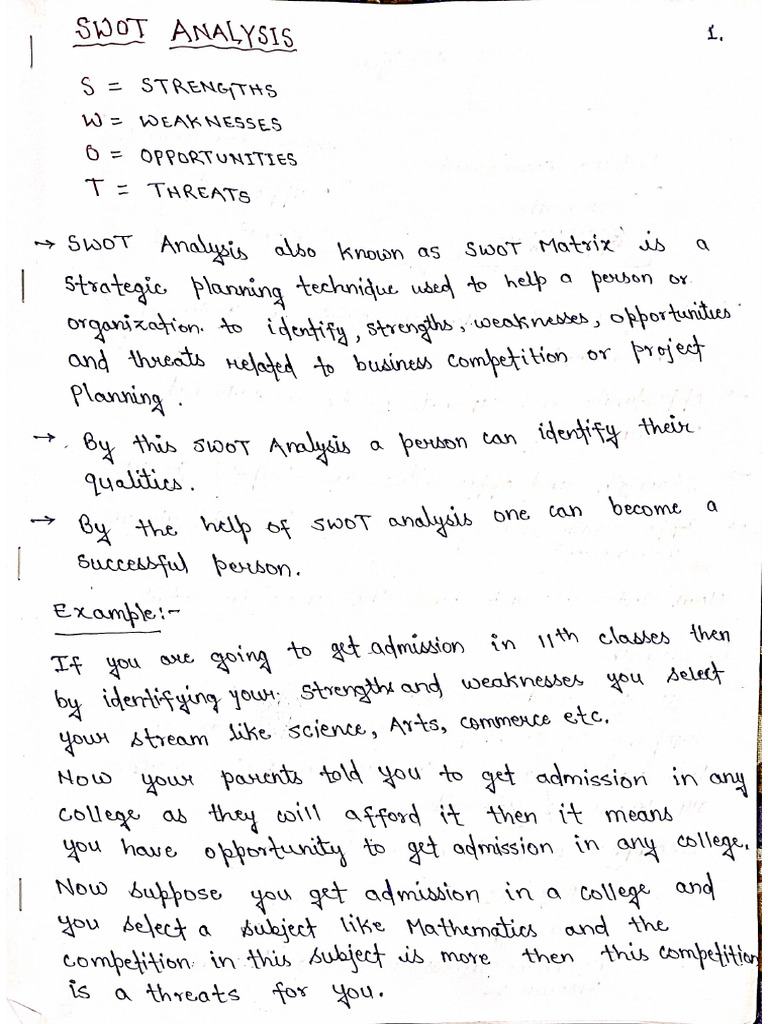 SWOT ANALYSIS
1.
S = STRENGTHS
W = WEAKNESSES
O = OPPORTUNITIES
T = THREATS
→ SWOT Analysis also known as SWOT Matrix is a
strategic planning technique used to help a person or
organization. to identify, strengths, weaknesses, opportunities
and threats related to business competition or project
planning.
→ By this SWOT Analysis a person can identify their
qualities.
→ By the help of SWOT analysis one can become a
successful person.
Example:-
If you are going to get admission in 11th classes then
by identifying your strengths and weaknesses you select
your stream like science, Arts, commerce etc.
Now your parents told you to get admission in any
college as they will afford it then it means
you have opportunity to get admission in any college.
Now suppose you get admission in a college and
you select a subject like Mathematics and the
competition in this subject is more then this competition
is a threats for you.